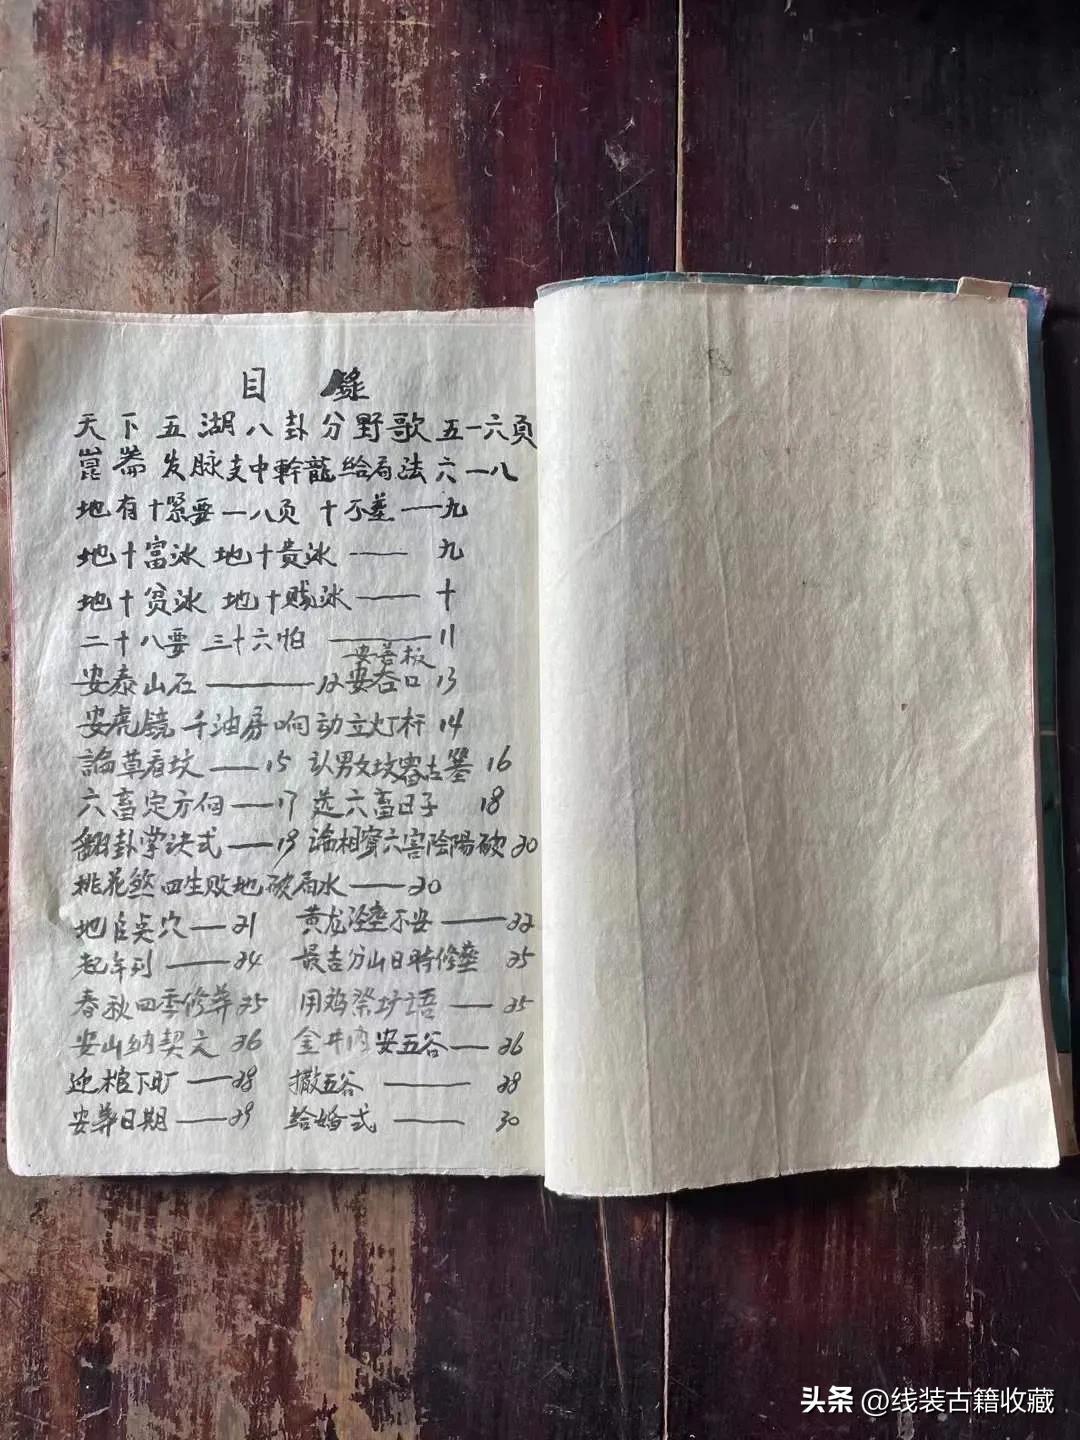 目 錄
天下五湖八卦分野歌五一六页
崑崙发脉支中幹龍给局法六一八
地有十紧要一八页 十不差——九
地十富冰 地十贵冰 —— 九
地十贫冰 地十贱冰 —— 十
二十八要 三十六怕 —— 11
安善板
安泰山石 —— 12 安谷口 13
安虎镜 千油房响动立灯杆 14
論草看坟 —— 15 认男女坟塚古墓 16
六畜定方向 —— 17 选六畜日子 18
翻卦掌诀式 —— 19 論相賓六害陰陽破 20
桃花煞四生败地破局水 —— 20
地 点穴 — 21 黄龙 不安 —— 22
起年到 —— 24 最吉分山日時修塋 25
春秋四季修葬 25 用鸡祭坟语 — 25
安山纳契文 26 金井内安五谷 — 26
迎棺下圹 — 28 撒五谷 —— 28
安葬日期 — 29 给婚式 —— 30
头条 @线装古籍收藏